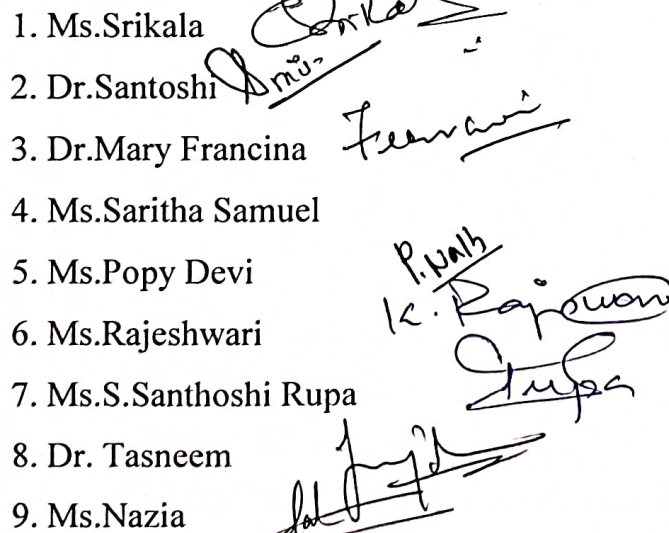 1. Ms.Srikala
2. Dr.Santoshi
3. Dr.Mary Francina
4. Ms.Saritha Samuel
5. Ms.Popy Devi P.Nath
6. Ms.Rajeshwari K.Rajeswari
7. Ms.S.Santhoshi Rupa Rupa
8. Dr. Tasneem
9. Ms.Nazia